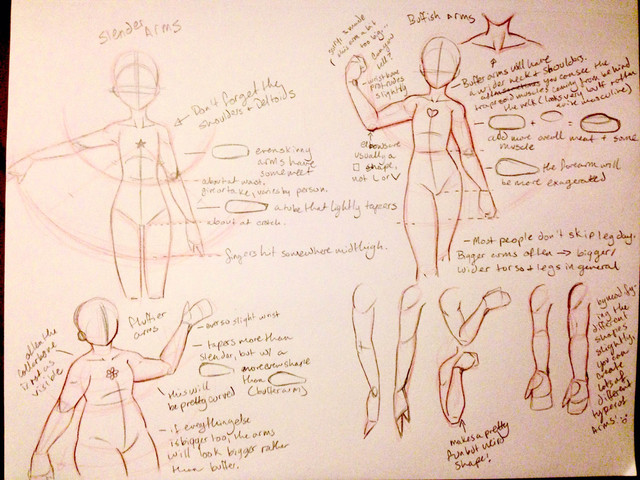 Slender Arms
Don't forget the
shoulders - Deltoids
even skinny
arms have
some meat
about at waist,
give or take, varies by person.
a tube that lightly tapers
about at crotch.
fingers hit somewhere mid thigh.
Buffish Arms
Buffer arms will have
a wider neck + shoulders.
you can see the
trapezoid muscles coming from behind
the neck (looks very buff, rather
masculine)
add more overall meat + some
muscle
the forearm will
be more exagerated
wrist bone
protrudes
slightly
elbows are
usually a
shape,
not L or V
- Most people don't skip leg day.
Bigger arms often → bigger/
wider torso + legs in general
fluffier
arms
often the
collarbone
is not as
visible
ever so slight wrist
- tapers more than
slender, but w/ a
more even shape
than
(buffer arms)
this will
be pretty curved
- if everything else
is bigger too, the arms
will look bigger rather
than buffer.
makes a pretty
fun but weird
shape!
by modify-
ing the
different
shapes
slightly,
you can
create
lots of
different
types of
Arms!